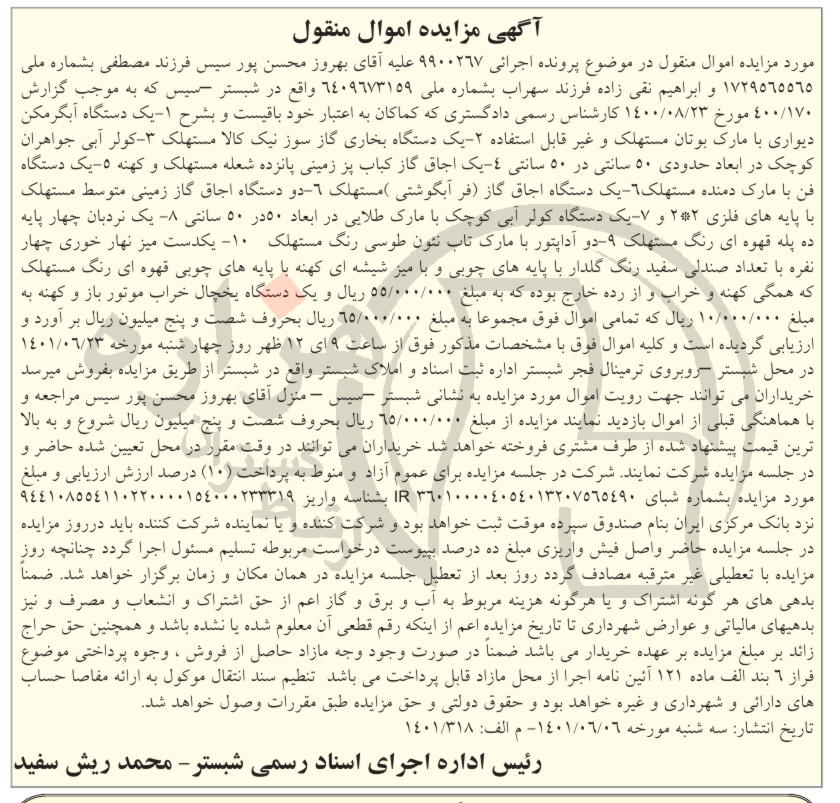 آگهی مزایده اموال منقول
مورد مزایده اموال منقول در موضوع پرونده اجرائی ۹۹۰۰۲۶۷ علیه آقای بهروز محسن پور سیس فرزند مصطفی بشماره ملی
۱۷۲۹۵۶۵۵۶۵ و ابراهیم نقی زاده فرزند سهراب بشماره ملی ٦٤۰۹٦۷۳۱۵۹ واقع در شبستر –سیس که به موجب گزارش
٤۰۰/۱۷۰ مورخ ۱٤۰۰/۰۸/۲۳ کارشناس رسمی دادگستری که کماکان به اعتبار خود باقیست و بشرح ۱-یک دستگاه آبگرمکن
دیواری با مارک بوتان مستهلک و غیر قابل استفاده ۲-یک دستگاه بخاری گاز سوز نیک کالا مستهلک ۳-کولر آبی جواهران
کوچک در ابعاد حدودی ۵۰ سانتی در ۵۰ سانتی ٤-یک اجاق گاز کباب پز زمینی پانزده شعله مستهلک و کهنه ۵-یک دستگاه
فن با مارک دمنده مستهلک٦-یک دستگاه اجاق گاز (فر آبگوشتی )مستهلک ٦-دو دستگاه اجاق گاز زمینی متوسط مستهلک
با پایه های فلزی ۲*۲ و ۷-یک دستگاه کولر آبی کوچک با مارک طلایی در ابعاد ۵۰در ۵۰ سانتی ۸- یک نردبان چهار پایه
ده پله قهوه ای رنگ مستهلک ۹-دو آداپتور با مارک تاب نئون طوسی رنگ مستهلک ۱۰- یکدست میز نهار خوری چهار
نفره با تعداد صندلی سفید رنگ گلدار با پایه های چوبی و با میز شیشه ای کهنه با پایه های چوبی قهوه ای رنگ مستهلک
که همگی کهنه و خراب و از رده خارج بوده که به مبلغ ۵۵/۰۰۰/۰۰۰ ریال و یک دستگاه یخچال خراب موتور باز و کهنه به
مبلغ ۱۰/۰۰۰/۰۰۰ ریال که تمامی اموال فوق مجموعا به مبلغ ٦۵/۰۰۰/۰۰۰ ریال بحروف شصت و پنج میلیون ریال بر آورد و
ارزیابی گردیده است و کلیه اموال فوق با مشخصات مذکور فوق از ساعت ۹ الی ۱۲ ظهر روز چهار شنبه مورخه ۱٤۰۱/۰٦/۲۳
در محل شبستر –روبروی ترمینال فجر شبستر اداره ثبت اسناد و املاک شبستر واقع در شبستر از طریق مزایده بفروش میرسد
خریداران می توانند جهت رویت اموال مورد مزایده به نشانی شبستر –سیس – منزل آقای بهروز محسن پور سیس مراجعه و
با هماهنگی قبلی از اموال بازدید نمایند مزایده از مبلغ ٦۵/۰۰۰/۰۰۰ ریال بحروف شصت و پنج میلیون ریال شروع و به بالا
ترین قیمت پیشنهاد شده از طرف مشتری فروخته خواهد شد خریداران می توانند در وقت مقرر در محل تعیین شده حاضر و
در جلسه مزایده شرکت نمایند. شرکت در جلسه مزایده برای عموم آزاد و منوط به پرداخت (۱۰) درصد ارزش ارزیابی و مبلغ
مورد مزایده بشماره شبای IR ۳٦۰۱۰۰۰۰٤۰۵٤۰۱۳۲۰۷۵٦۵٤۹۰ بشناسه واریز ۹٤٤۱۰۸۵۵٤۱۱۰۲۲۰۰۰۰۱۵٤۰۰۰۲۳۳۳۱۹
نزد بانک مرکزی ایران بنام صندوق سپرده موقت ثبت خواهد بود و شرکت کننده و یا نماینده شرکت کننده باید درروز مزایده
در جلسه مزایده حاضر واصل فیش واریزی مبلغ ده درصد بپیوست درخواست مربوطه تسلیم مسئول اجرا گردد چنانچه روز
مزایده با تعطیلی غیر مترقبه مصادف گردد روز بعد از تعطیل جلسه مزایده در همان مکان و زمان برگزار خواهد شد. ضمناً
بدهی های هر گونه اشتراک و یا هرگونه هزینه مربوط به آب و برق و گاز اعم از حق اشتراک و انشعاب و مصرف و نیز
بدهیهای مالیاتی و عوارض شهرداری تا تاریخ مزایده اعم از اینکه رقم قطعی آن معلوم شده یا نشده باشد و همچنین حق حراج
زائد بر مبلغ مزایده بر عهده خریدار می باشد ضمناً در صورت وجود وجه مازاد حاصل از فروش ، وجوه پرداختی موضوع
فراز ٦ بند الف ماده ۱۲۱ آئین نامه اجرا از محل مازاد قابل پرداخت می باشد تنطیم سند انتقال موکول به ارائه مفاصا حساب
های دارائی و شهرداری و غیره خواهد بود و حقوق دولتی و حق مزایده طبق مقررات وصول خواهد شد.
تاریخ انتشار: سه شنبه مورخه ۱٤۰۱/۰٦/۰٦- م الف: ۱٤۰۱/۳۱۸
رئیس اداره اجرای اسناد رسمی شبستر- محمد ریش سفید